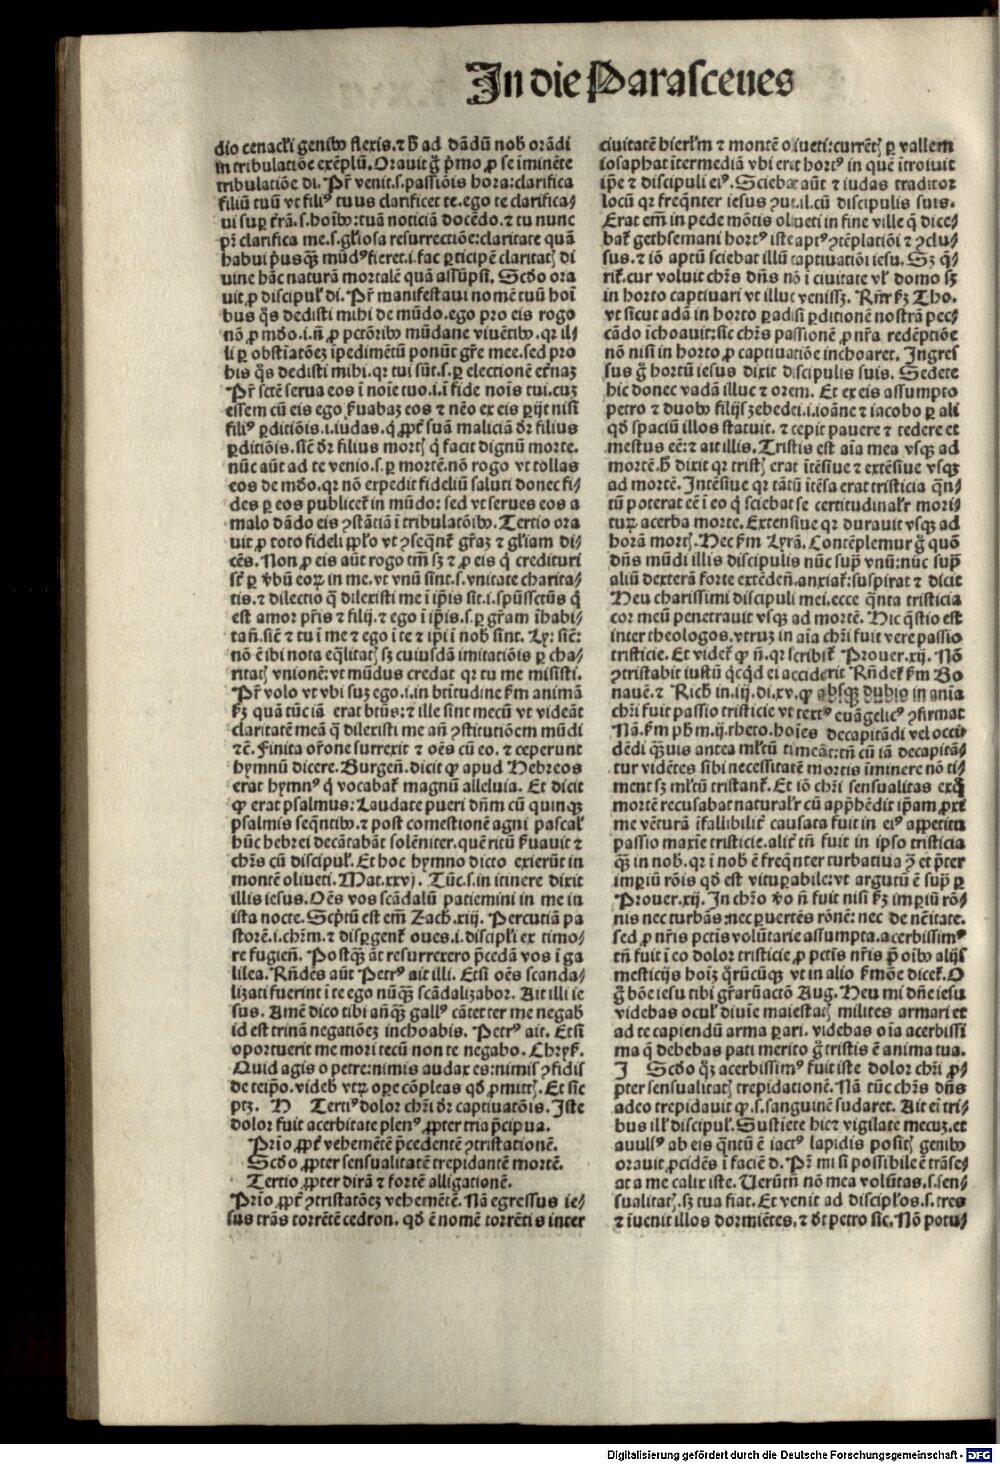 In die Parasceues
dio cenacl'i genib9 flexis. ⁊ h̄ ad dādū nob̄ orādi
in tribulatiōe exēplū. Orauit g̊ p̄mo ꝓ se iminēte
tribulatiōe di. Pr̄ venit .s. passiōis hora: clarifica
filiū tuū vt filiꝰ tuus clarificet te. ego te clarifica⸗
ui suꝑ t̄rā .s. hoib9: tuā noticiā docēdo. ⁊ tu nunc
pr̄ clarifica me .s. gl̄iosa resurrectiōe: claritate quā
habui p̄usqꝫ mūdꝰ fieret .i. fac ꝑticipē claritatꝭ di
uine hāc naturā mortalē quā assūpsi. Scd̄o ora
uit ꝓ discipul̄ di. Pr̄ manifestaui nomē tuū hoī
bus q̊s dedisti mihi de mūdo. ego pro eis rogo
nō ꝓ mūdo .i. n̄ ꝓ pctōrib9 mūdane viuētib9. qr il⸗
li ꝑ obstīatōeꝫ īpedimētū ponūt gr̄e mee. sed pro
his q̊s dedisti mihi. qr tui sūt .s. ꝑ electionē et̄naꝫ
Pr̄ sctē serua eos ī noīe tuo .i. ī fide noīs tui. cuꝫ
essem cū eis ego ẜuabaꝫ eos ⁊ nēo ex eis ꝑijt nisi
filiꝰ ꝑditiōis .i. iudas. q̇ ꝓpt̄ suā maliciā dr̄ filius
ꝑditiōis. sic̄ dr̄ filius mortꝭ q̇ facit dignū morte.
nūc aūt ad te venio .s. ꝑ mortē. nō rogo vt tollas
eos de mūdo. qr nō expedit fideliū saluti donec fi⸗
des ꝑ eos publicet̄ in mūdo: sed vt serues eos a
malo dādo eis ꝯstātiā ī tribulatōib9. Tertio ora
uit ꝓ toto fideli pp̄lo vt ꝯseq̄nt̄ gr̄aꝫ ⁊ gl̄iam di⸗
cēs. Non ꝓ eis aūt rogo tm̄ sꝫ ⁊ ꝓ eis q̇ credituri
st̄ ꝑ vbū eoꝝ in me. vt vnū sint .s. vnitate charita⸗
tis. ⁊ dilectio q̄ dilexisti me ī ip̄is sit .i. spūssctūs q̇
est amor pr̄is ⁊ filij. ⁊ ego ī ip̄is .s. ꝑ gr̄am īhabi⸗
tan̄. sic̄ ⁊ tu ī me ⁊ ego ī te ⁊ ip̄i ī nob̄ sint. Ly: sic̄:
nō ē ibi nota eq̄litatꝭ sꝫ cuiusdā imitatiōis ꝑ cha⸗
ritatꝭ vnionē: vt mūdus credat qr tu me misisti.
Pr̄ volo vt vbi suꝫ ego .i. in btitudine ẜm animā
ẜꝫ quā tūc iā erat btūs: ⁊ ille sint mecū vt videāt
claritatē meā q̄ dilexisti me an̄ ꝯstitutiōem mūdi
⁊c̄. Finita or̄one surrexit ⁊ oēs cū eo. ⁊ ceperunt
hymnū dicere. Burgen̄. dicit ꝙ apud Hebreos
erat hymnꝰ q̇ vocabat̄ magnū alleluia. Et dicit
ꝙ erat psalmus: Laudate pueri dn̄m cū quinqꝫ
psalmis seq̄ntib9. ⁊ post comestionē agni pascal̄
hūc hebrei decātabāt solēniter. quē ritū ẜuauit ⁊
chr̄s cū discipul̄. Et hoc hymno dicto exierūt in
montē oliueti. Mat. xxvj. Tūc .s. in itinere dixit
illis iesus. Oēs vos scādalū patiemini in me in
ista nocte. Scp̄tū est em̄ Zach. xiij. Percutiā pa
storē .i. chr̄m. ⁊ disꝑgent̄ oues .i. discipl̄i ex timo⸗
re fugien̄. Postqꝫ āt resurrexero p̄cedā vos ī ga
lilea. Rn̄des aūt Petrꝰ ait illi. Etsi oēs scanda⸗
lizati fuerint ī te ego nūqꝫ scādalizabor. Ait illi ie
sus. Amē dico tibi an̄qꝫ gallꝰ cātet ter me negab̄
id est trinā negatiōeꝫ inchoabis. Petrꝰ ait. Etsi
oportuerit me mori tecū non te negabo. Chrys̄.
Quid agis o petre: nimis audax es: nimis ꝯfidis
de teip̄o. videb̄ vtꝝ oꝑe cōpleas qd̄ ꝓmittꝭ. Et sic
ptꝫ. H Tertiꝰ dolor chr̄i dr̄ captiuatōis. Iste
dolor fuit acerbitate plenꝰ ꝓpter tria p̄cipua.
Prīo ꝓpt̄ vehemētē p̄cedentē ꝯtristationē.
Scd̄o ꝓpter sensualitatē trepidantē mortē.
Tertio ꝓpter dirā ⁊ fortē alligationē.
Prīo ꝓpt̄ ꝯtristatōeꝫ vehemētē. Nā egressus ie⸗
sus trās torrētē cedron. qd̄ ē nomē torrētis inter
ciuitatē hierl̄m ⁊ montē oliueti: currētꝭ ꝑ vallem
iosaphat ītermediā vbi erat hortꝰ in quē ītroiuit
ip̄e ⁊ discipuli eiꝰ. Sciebat aūt ⁊ iudas traditor
locū qr freq̄nter iesus ꝯuēl. cū discipulis suis.
Erat em̄ in pede mōtis oliueti in fine ville q̄ dice⸗
bat̄ gethsemani hortꝰ iste aptꝰ ꝯtēplatiōi ⁊ ꝯclu⸗
sus. ⁊ iō aptū sciebat illū captiuatiōi iesu. Sꝫ q̄⸗
rit̄. cur voluit chr̄s dn̄s nō ī ciuitate vl̄ domo sꝫ
in horto captiuari vt illuc venisset. Rn̄r ẜꝫ Tho.
vt sicut adā in horto ꝑadisi ꝑditionē nostrā pec⸗
cādo īchoauit: sic chr̄s passionē ꝓ nr̄a redēptiōe
nō nisi in horto ꝓ captiuatiōe inchoaret. Ingres
sus g̊ hortū iesus dixit discipulis suis. Sedete
hic donec vadā illuc ⁊ orem. Et ex eis assumpto
petro ⁊ duob9 filijs zebedei .i. ioāne ⁊ iacobo ꝑ ali
qd̄ spaciū illos statuit. ⁊ cepit pauere ⁊ tedere et
mestus eē: ⁊ ait illis. Tristis est aīa mea vsqꝫ ad
mortē. h̄ dixit qr tristꝭ erat ītēsiue ⁊ extēsiue vsqꝫ
ad mortē. Intēsiue qr tātū ītēsa erat tristicia q̄n⸗
tū poterat eē ī eo q̇ sciebat se certitudinal̄r mori⸗
turꝫ acerba morte. Extensiue qr durauit vsqꝫ ad
horā mortꝭ. Hec ẜm Lyrā. Contēplemur g̊ quō
dn̄s mūdi illis discipulis nūc sup̄ vnū: nūc sup̄
aliū dexterā forte extēden̄. anxiat̄: suspirat ⁊ dicit
Heu charissimi discipuli mei. ecce q̄nta tristicia
cor meū penetrauit vsqꝫ ad mortē. Hic q̄stio est
inter theologos. vtruꝫ in aīa chr̄i fuit vere passio
tristicie. Et videt̄ ꝙ n̄. qr scribit̄ Prouer. xij. Nō
ꝯtristabit iustū q̇cqd̄ ei acciderit Rn̄det̄ ẜm Bo
nauē. ⁊ Rich in .iij. di. xv. ꝙ absqꝫ dubio in anīa
chr̄i fuit passio tristicie vt textꝰ euāgelicꝰ ꝯfirmat
Nā ẜm ph̄m .ij. rheto. hoīes decapitādi vel occi⸗
dēdi q̄uis antea ml̄tū timeāt: tn̄ cū iā decapitā⸗
tur vidētes sibi necessitatē mortis īminere nō ti⸗
ment sꝫ ml̄tū tristant̄. Et iō chr̄i sensualitas exq̇
mortē recusabat natural̄r cū app̄hēdit ip̄am ꝓxī
me vēturā īfallibilit̄ causata fuit in eiꝰ appetitu
passio maxīe tristicie. alit̄ tn̄ fuit in ipso tristicia
qꝫ in nob. qr ī nob̄ ē freq̄nter turbatiua ꝫ et p̄ter
imꝑiū rōis qd̄ est vituꝑabile: vt argutū ē sup̄ ꝑ
Prouer. xij. In chr̄o v̄o n̄ fuit nisi ẜꝫ imꝑiū rō⸗
nis nec turbās: nec ꝑuertēs rōnē: nec de nc̄itate.
sed ꝓ nr̄is pctīs volūtarie assumpta. acerbissimꝰ
tn̄ fuit ī eo dolor tristicie ꝓ pctīs nr̄is p̄ oib9 alijs
mesticijs hoīꝫ q̇rūcūqꝫ vt in alio ẜmōe dicet̄. O
g̊ bōe iesu tibi gr̄arū actō Aug. Heu mi dn̄e iesu
videbas ocul̄ diuīe maiestatꝭ milites armari et
ad te capiendū arma ꝑari. videbas oīa acerbissi
ma q̄ debebas pati merito g̊ tristis ē anima tua.
I Scd̄o q̇ꝫ acerbissimꝰ fuit iste dolor chr̄i ꝓ⸗
pter sensualitatꝭ trepidationē. Nā tūc chr̄s dn̄s
adeo trepidauit ꝙ .s. sanguinē sudaret. Ait ei tri⸗
bus ill̄ discipul̄. Sustinete hic ⁊ vigilate mecuꝫ. et
auulsꝰ ab eis q̄ntū ē iactꝰ lapidis positꝭ genib9
orauit ꝓcidēs ī faciē d. Pr̄ mi si possibile ē trāse⸗
at a me calix iste. Uerūtn̄ nō mea volūtas .s. sen⸗
sualitatꝭ. sꝫ tua fiat. Et venit ad discipl̄os .s. tres
⁊ īuenit illos dormiētes. ⁊ dr̄ petro sic. Nō potu⸗
Digitalisierung gefördert durch die Deutsche Forschungsgemeinschaft - DFG